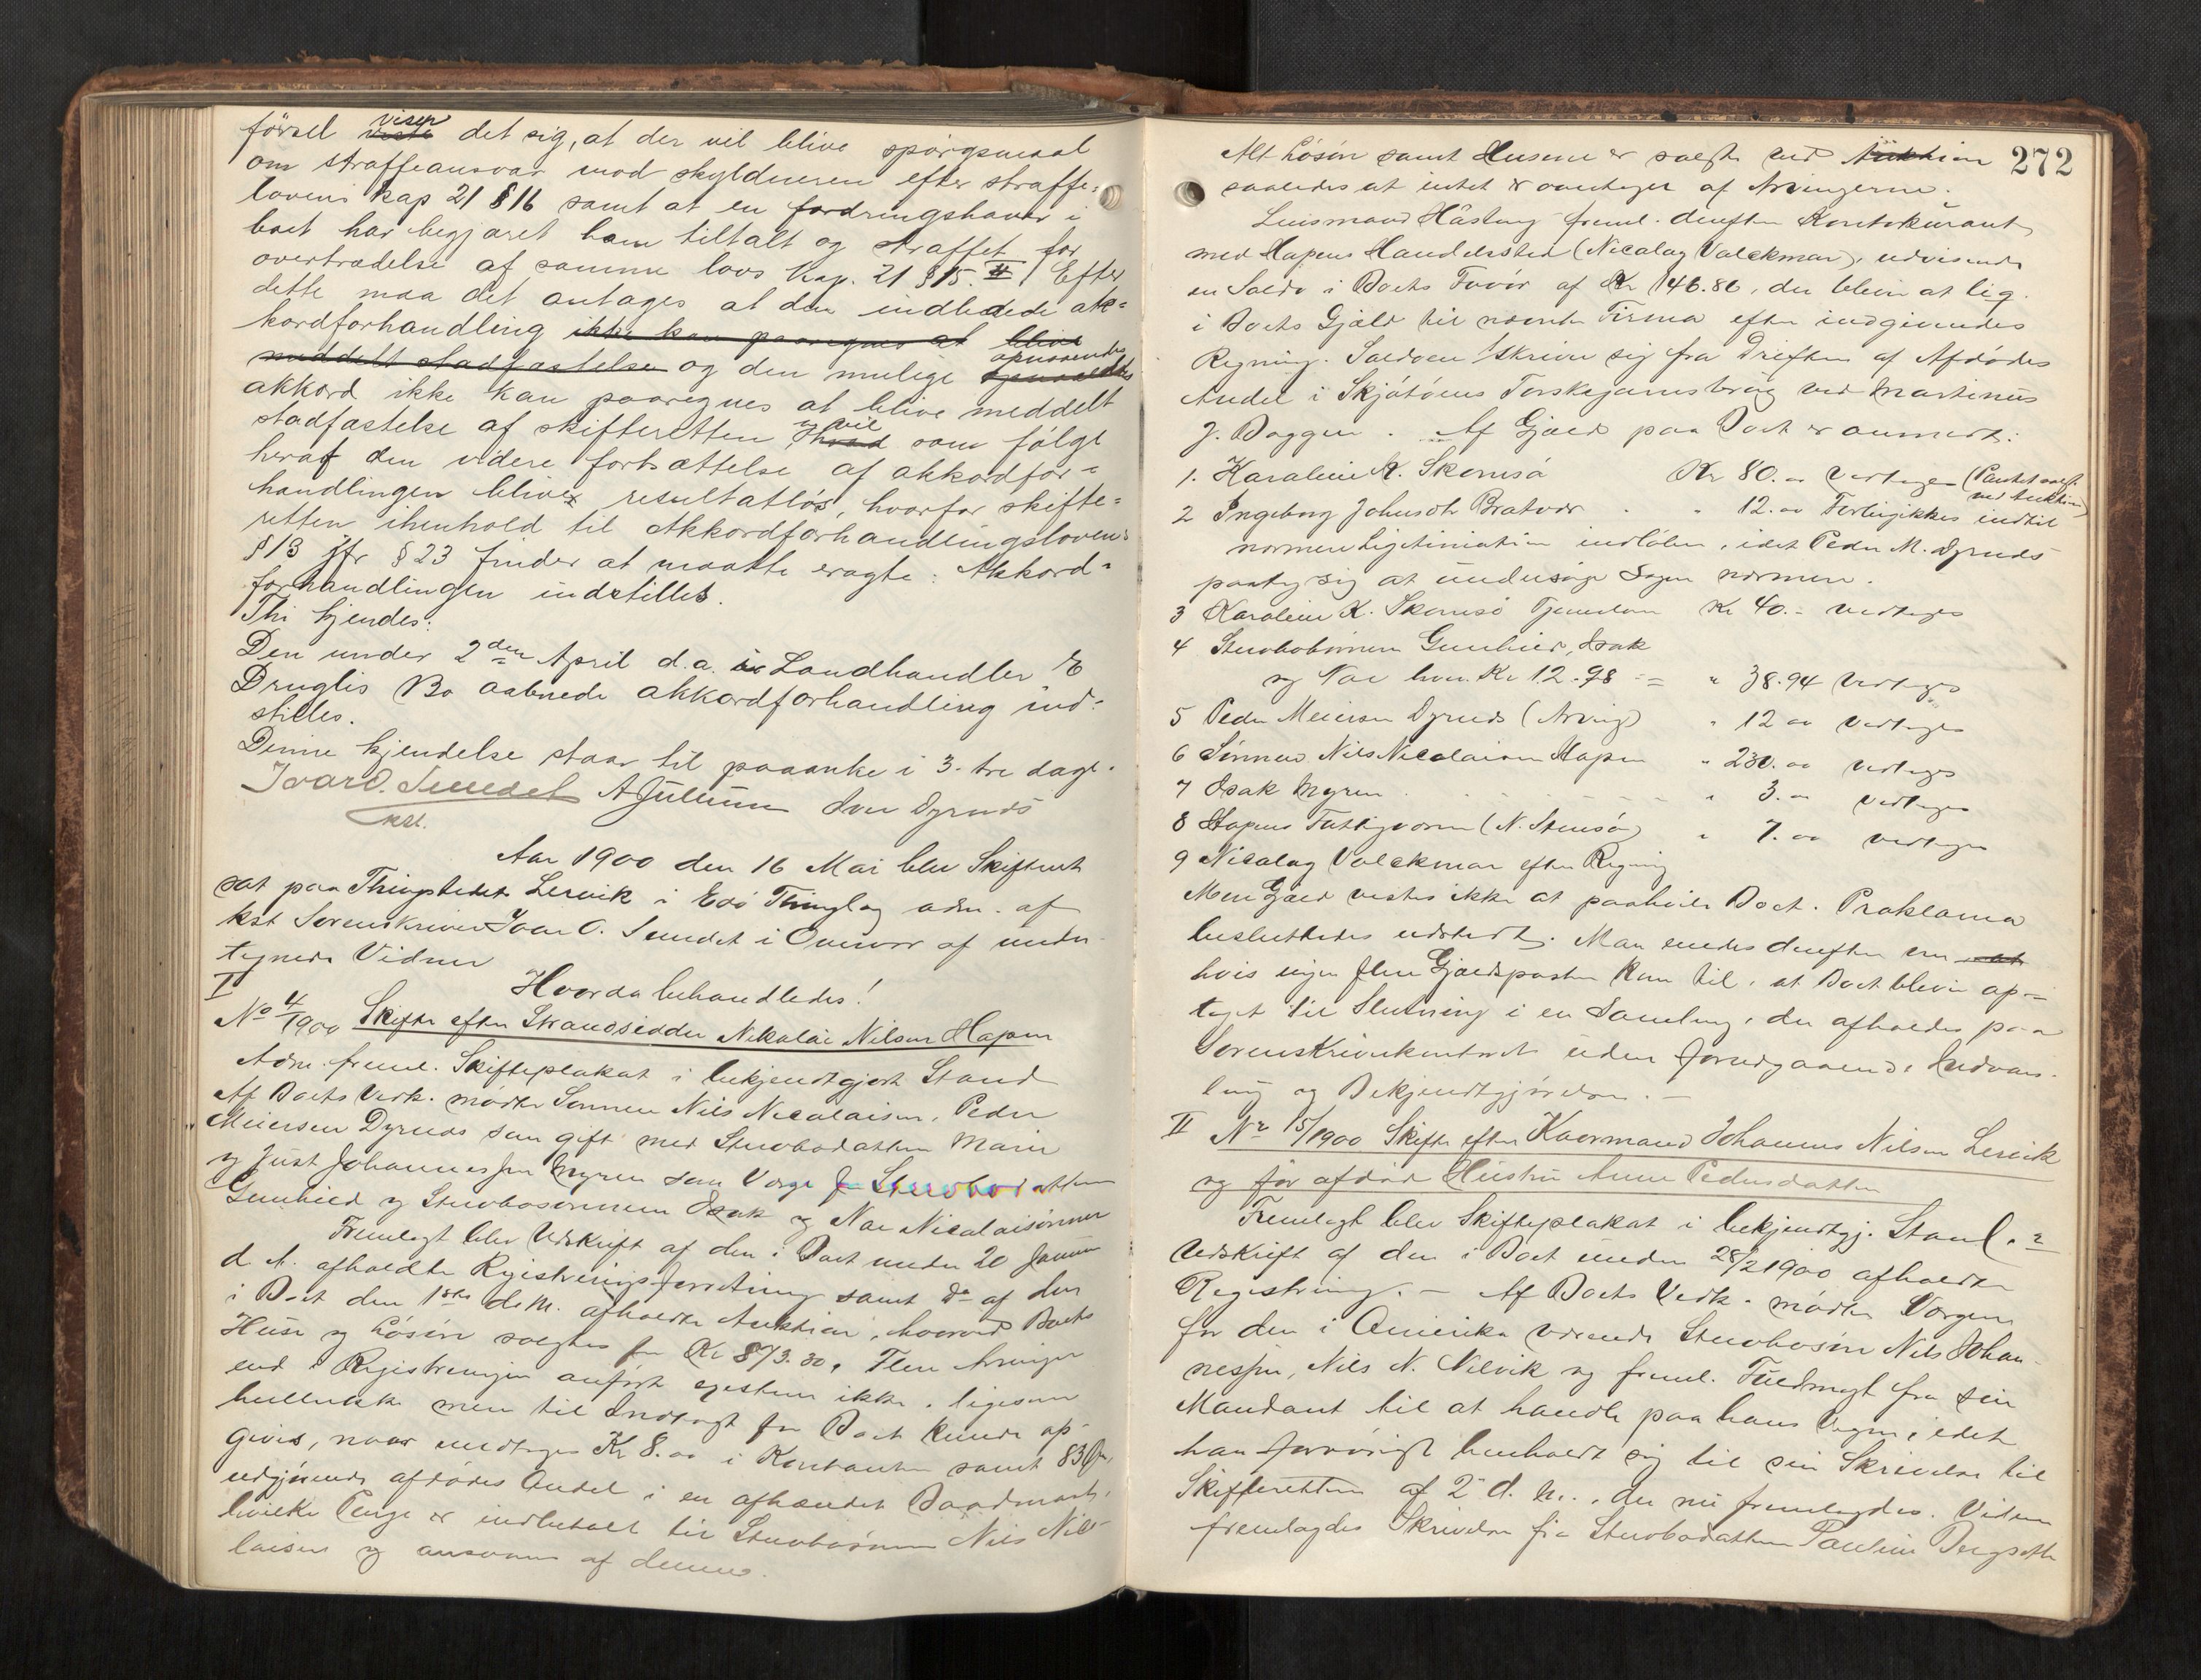 førsel viser det sig, at der vil blive spørgsmaal
om straffeansvar mod skyldneren efter straffe=
lovens kap 21 § 16 samt at en fordringshaver i
boet har begjæret ham tiltalt og straffet for
overtrædelse af samme lovs kap. 21 § 15. Efter
dette maa det antages at den indledede ak=
kordforhandling ikke kan paaregnes at blive
meddelt stadfæstelse og den mulige opnaaendes
akkord ikke kan paaregnes at blive meddelt
stadfæstelse af skifteretten og vil som følge
heraf den videre fortsættelse af akkordfor=
handlingen blive resultatløs, hvorfor skifte=
retten ihenhold til Akkordforhandlingslovens
§ 13 jfr § 23 finder at maatte eragte: Akkord=
forhandlingen indstilles.
Thi kjendes:
Den under 2den April d.a. i Landhandler E
Druglis Bo aabnede akkordforhandling ind=
stilles.
Denne kjendelse staar til paaanke i 3- tre dage.
Ivar O. Sundet A Julum Iver Dyrnes
kst.
Aar 1900 den 16 Mai blev Skifteret
sat paa Thingstedet Lervik i Edø Thinglag adm. af
kst Sorenskriver Ivar O. Sundet i Overvær af under-
tegnede Vidner
Hvorda behandledes!
I
No 4/1900 Skifte efter Strandsidder Nikolai Nilsen Hapen
Adm. freml. Skifteplakat i bekjendtgjort Stand
Af Boets Vedk. mødte Sønnen Nils Nicolaisen, Peder
Meiersen Dyrnes som gift med Stervbodatteren Marie
og Just Johannessen Myren som Værge for Stervbodatteren
Gunhild og Stervbosønnerne Isak og Noe Nicolaisønner
Fremlagt blev Udskrift af den i Boet under 20 Januar
d A. afholdte Registreringsforretning samt do af den
i Boet den 1ste ds M. afholdte Auktion, hvorved Boets
Huse og Løsøre solgtes for Kr 873.30. Flere Arvinger
end i Registreringen anført existerer ikke, ligesom
hellerikke mere til Indtægt for Boet kunde op-
gives, naar undtages Kr 8.00 i Kontanter samt 83 Øre,
udgjørende afdødes Andel i en afhændet Baadmast,
hvilke Penge er indbetalt til Stervbosønnen Nils Nico-
laisen og ansvares af denne.
272
Alt Løsøre samt Husene er solgt ved Auktion
saaledes at intet er overtaget af Arvingerne.
Lensmand Håskang freml. derefter Kontokurant
med Hapens Handelssted (Nicolay Volckmar), udvisende
en Saldo i Boets Favør af Kr 146.86, der bliver at lig.
i Boets Gjæld til nævnte Firma efter indgivendes
Regning. Saldoen skriver sig fra Driften af Afdødes
Andel i Skjøtøens Torskegarnsbrug ved Martinus
J. Baggen. Af Gjæld paa Boet er anmeldt:
1. Karoline K. Skomsø Kr 80.00 Vedtages (Pantet solgt
ved Auktion)
2 Ingeborg Johnsdt Bratvær " 12.00 Forbigikkes indtil
nærmere Legitimation indløber, idet Peder M. Dyrnes
paatog sig at undersøge Sagen nærmere.
3 Karoline K. Skomsø Tjenerløn Kr 40.- vedtages
4 Stervbobørnene Gunhild, Isak
og Noe hver Kr 12.98 = " 38.94 Vedtages
5 Peder Meiersen Dyrnes (Arving) " 12 00 vedtages
6 Sønnen Nils Nicolaisen Hapen " 230.00 vedtages
7 Isak Myren " 3.00 vedtages
8 Hapens Fattigvæsen (N. Stensø) " 7.00 vedtages
9 Nicolay Volckmar efter Regning
Mere Gjæld vistes ikke at paahvile Boet. Proklama
besluttedes udstedt. Man enedes derefter om at
hvis ingen flere Gjældsposter kom til, at Boet bliver op-
taget til Slutning i en Samling, der afholdes paa
Sorenskriverkontoret uden forudgaaende Indvars-
ling og Bekjendtgjørelse. -
II No 15/1900 Skifte efter Kaarmand Johannes Nilsen Lervik
og før afdød Hustru Anne Pedersdatter
Fremlagt blev Skifteplakat i bekjendtgj. Stand.
Udskrift af den i Boet under 28/2 1900 afholdte
Registrering. - Af Boets Vedk. mødte Værgen
for den i Amerika værende Stervbosøn Nils Johan-
nesen, Nils N. Nelvik og freml. Fuldmagt fra sin
Mandant til at handle paa hans Vegne, idet
han forøvrigt henholdt sig til sin Skrivelse til
Skifteretten af 2 d. M., der nu fremlagdes. Videre
fremlagdes Skrivelse fra Stervbodatteren Pauline Bergseth